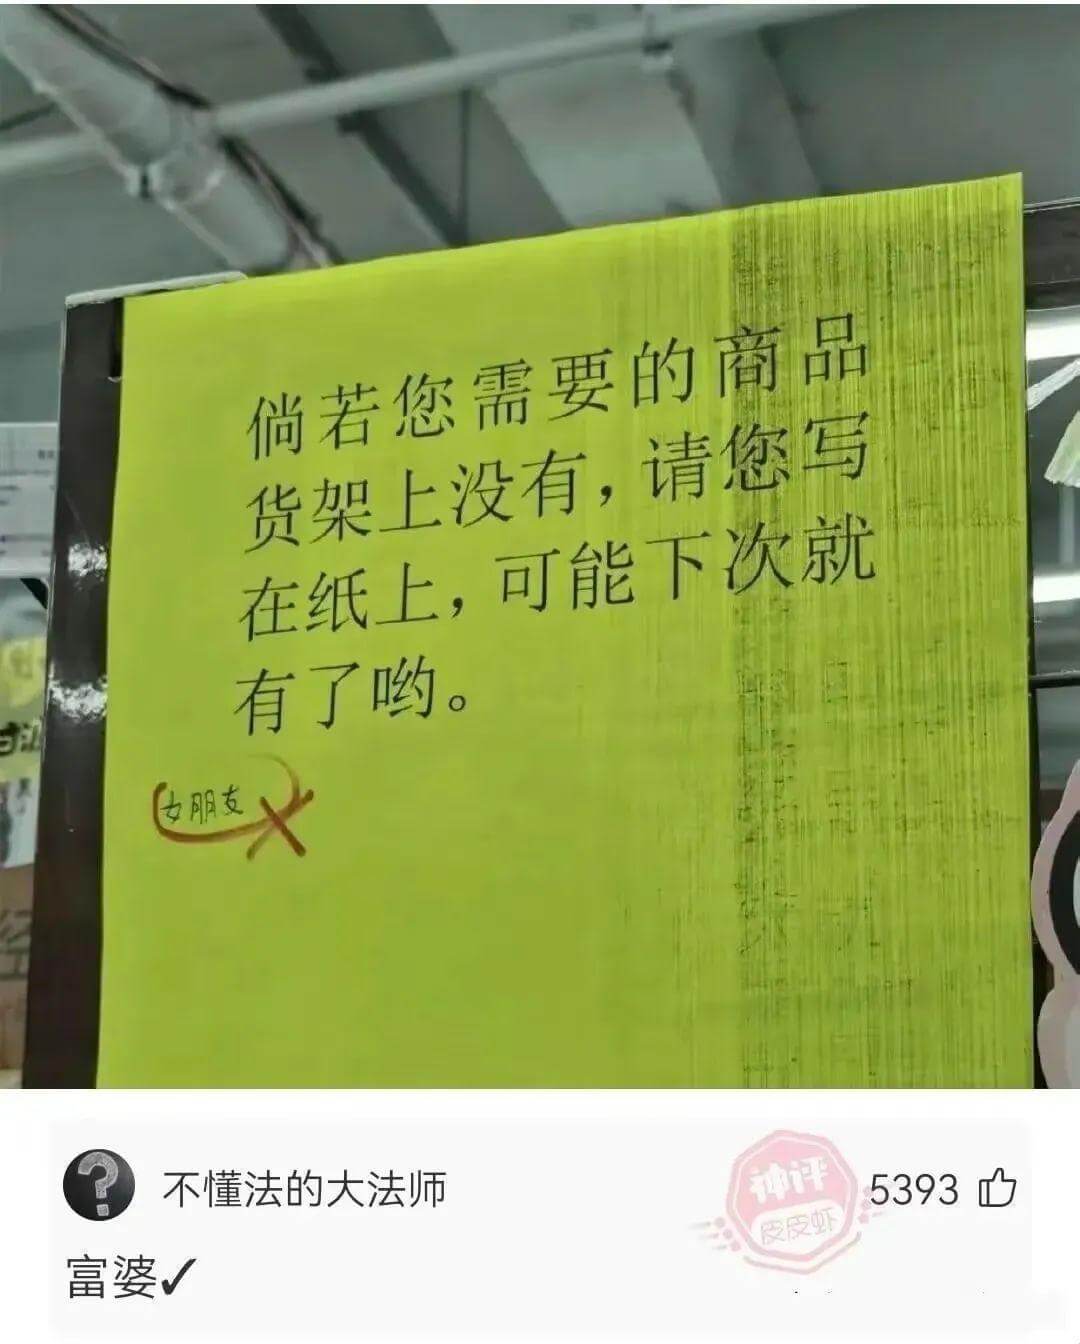 倘若您需要的商品
货架上没有，请您写
在纸上，可能下次就
有了哟。
女朋友
不懂法的大法师
神评
皮皮虾
5393
富婆✓